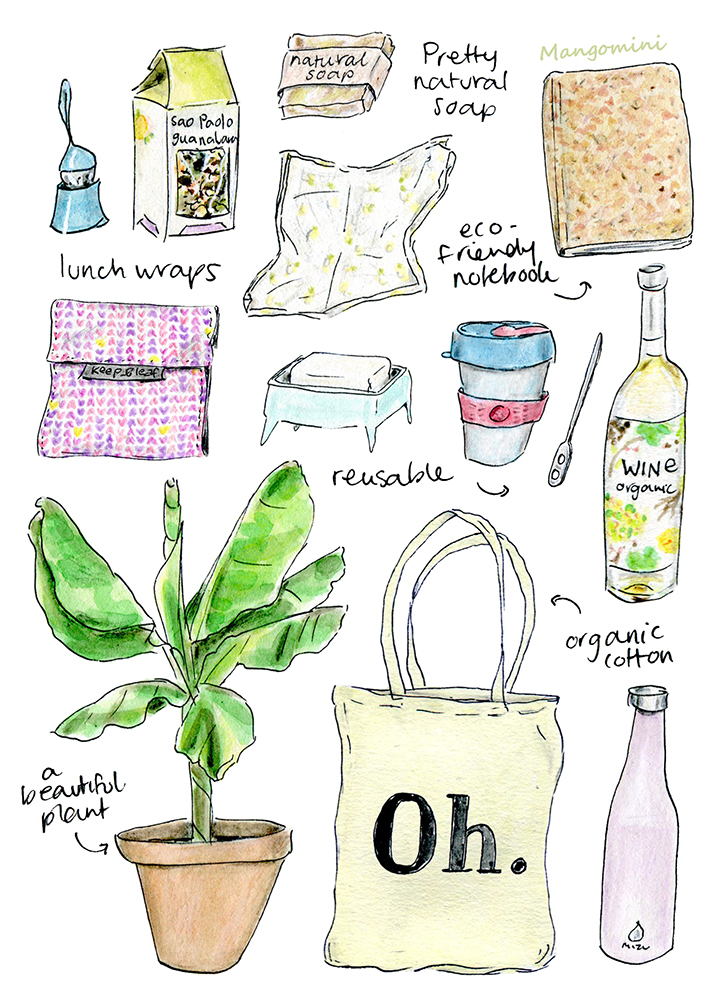 Mangomini
natural
soap
Pretty
natural
soap
sao Paolo
guanalawa
eco-
friendly
notebook
lunch wraps
keep leaf
reusable
WINE
organic
organic
cotton
a
beautiful
plant
Oh.
MIZU